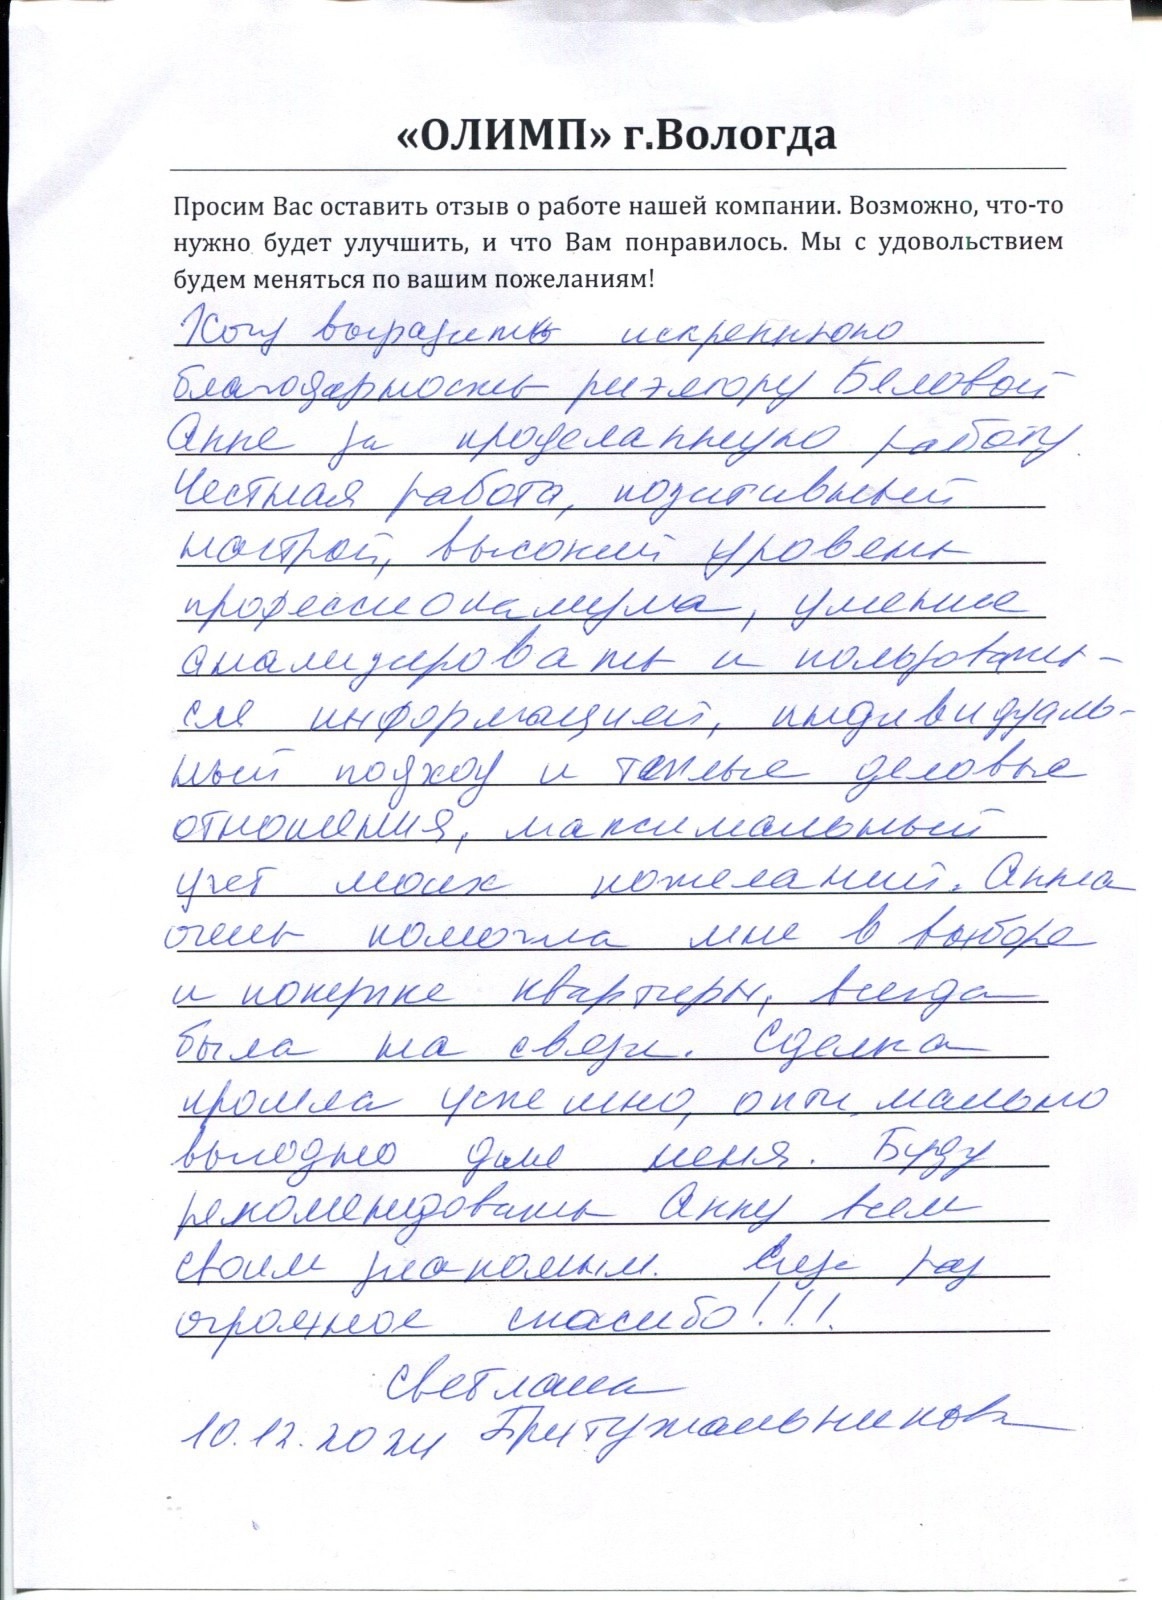 «ОЛИМП» г.Вологда
Просим Вас оставить отзыв о работе нашей компании. Возможно, что-то
нужно будет улучшить, и что Вам понравилось. Мы с удовольствием
будем меняться по вашим пожеланиям!
Хочу выразить искреннюю
благодарность риэлтору Беловой
Анне за проделанную работу.
Честная работа, позитивный
настрой, высокий уровень
профессионализма, умение
анализировать и пользовать-
ся информацией, индивидуаль-
ный подход и теплые деловые
отношения, максимальный
учет моих пожеланий. Анна
очень помогла мне в выборе
и покупке квартиры, всегда
была на связи. Сделка
прошла успешно, оптимально
выгодно для меня. Буду
рекомендовать Анну всем
своим знакомым. Еще раз
огромное спасибо!!!
Светлана
10.12.2024 Притужальникова